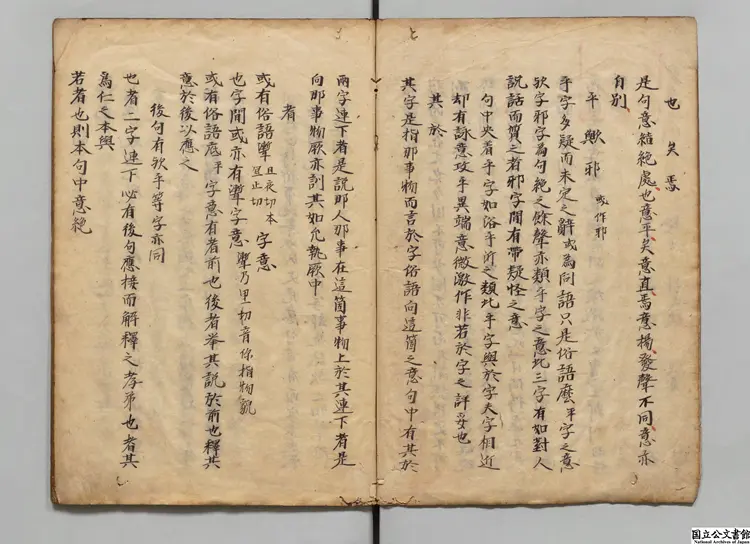 也 矣 焉
是句意結絶處也意平矣意直焉意揚發聲不同意亦
自別
乎 歟 邪 或作耶
乎字多疑而未定之辭或為問語只是俗語麽平字之意
欤字邪字為句絶之餘聲亦類乎字之意此三字有如對人
說話而質之者邪字間有帶疑怪之意
句中央着乎字如浴乎沂之類此乎字與於字夫字相近
却有詠意攻乎異端意微激作非若於字之詳妥也
其 於
其字是指那事物而言於字俗語向這箇之意句中有其於
兩字連下者是說那人那事在這箇事物上於其連下者是
向那事物厥亦訓其如允執厥中
者
或有俗語𪠽 且夜切本罝止切 字意
也字間或亦有𪠽字意 𪠽乃里切音你指物皃
或有俗語底平字意有者前也後者举其說於前也釋其
意於後以應之
後句有欤乎等字亦同
也者二字連下必有後句應接而解釋之孝弟也者其
為仁之本與
若者也則本句中意絶
国立公文書館
National Archives of Japan